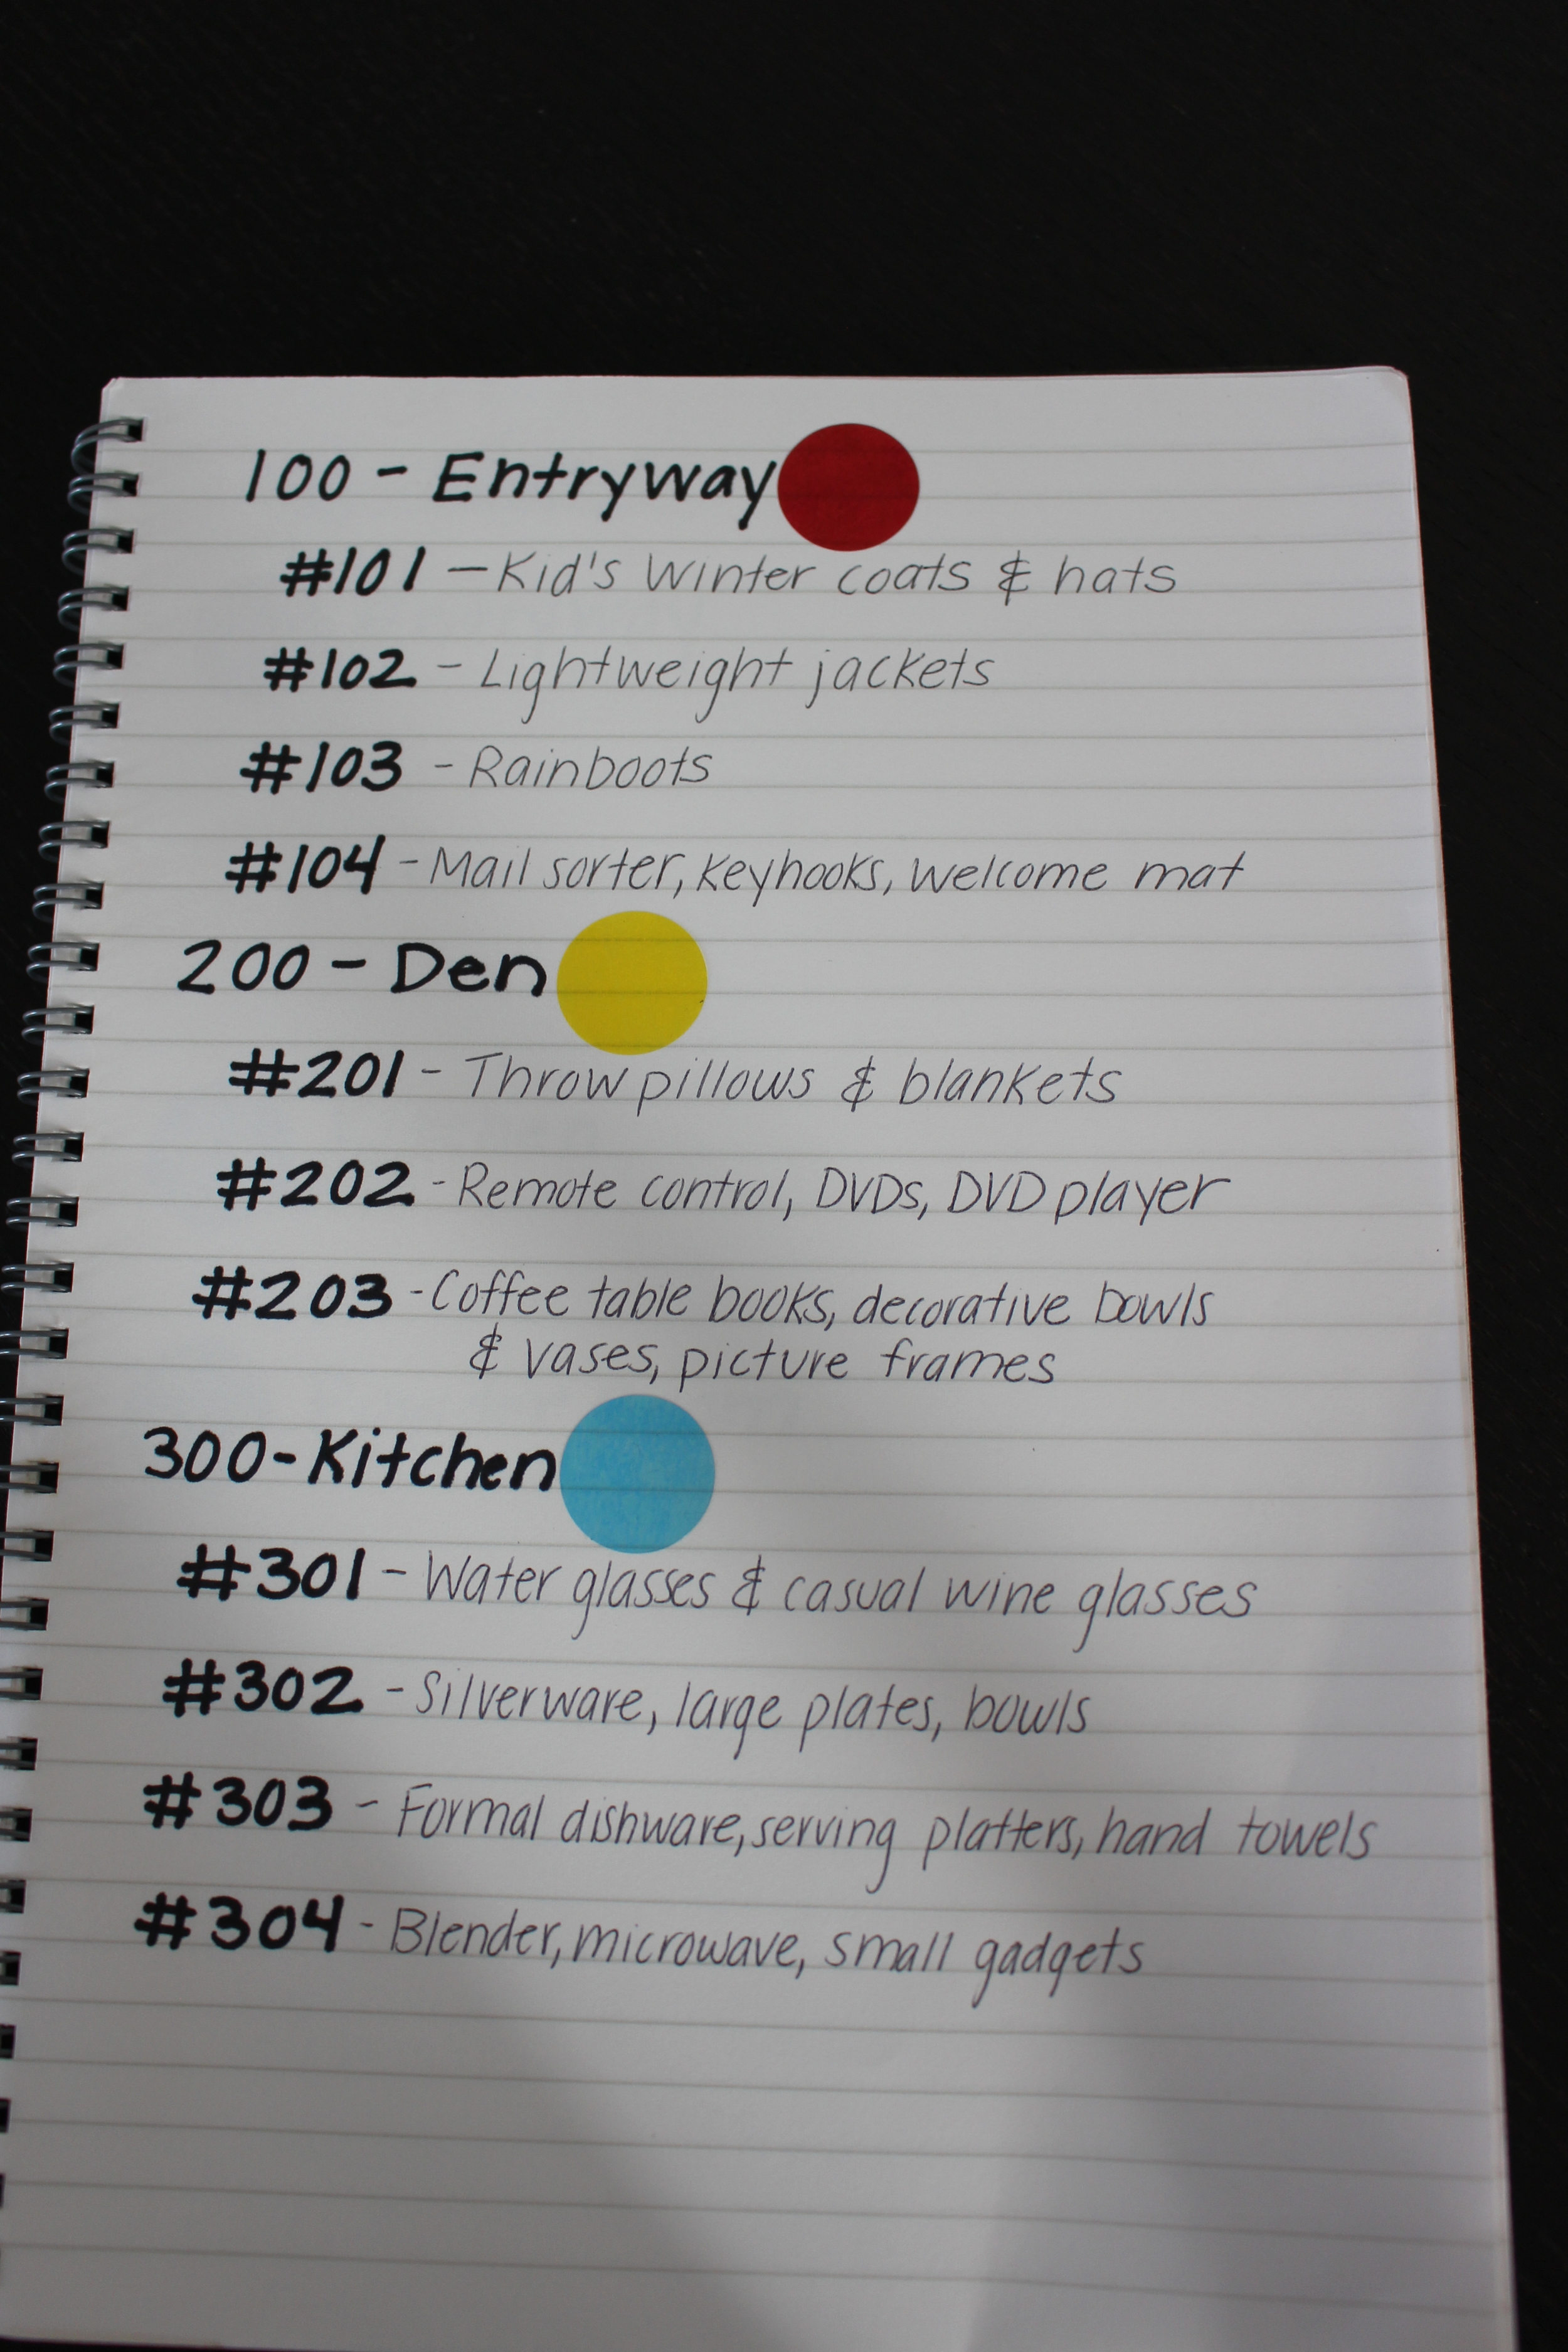 100 - Entryway
#101 - Kid's Winter coats & hats
#102 - Lightweight jackets
#103 - Rainboots
#104 - Mail sorter, keyhooks, welcome mat
200 - Den
#201 - Throw pillows & blankets
#202 - Remote control, DVDs, DVD player
#203 - Coffee table books, decorative bowls
& vases, picture frames
300 - Kitchen
#301 - Water glasses & casual wine glasses
#302 - Silverware, large plates, bowls
#303 - Formal dishware, serving platters, hand towels
#304 - Blender, microwave, small gadgets